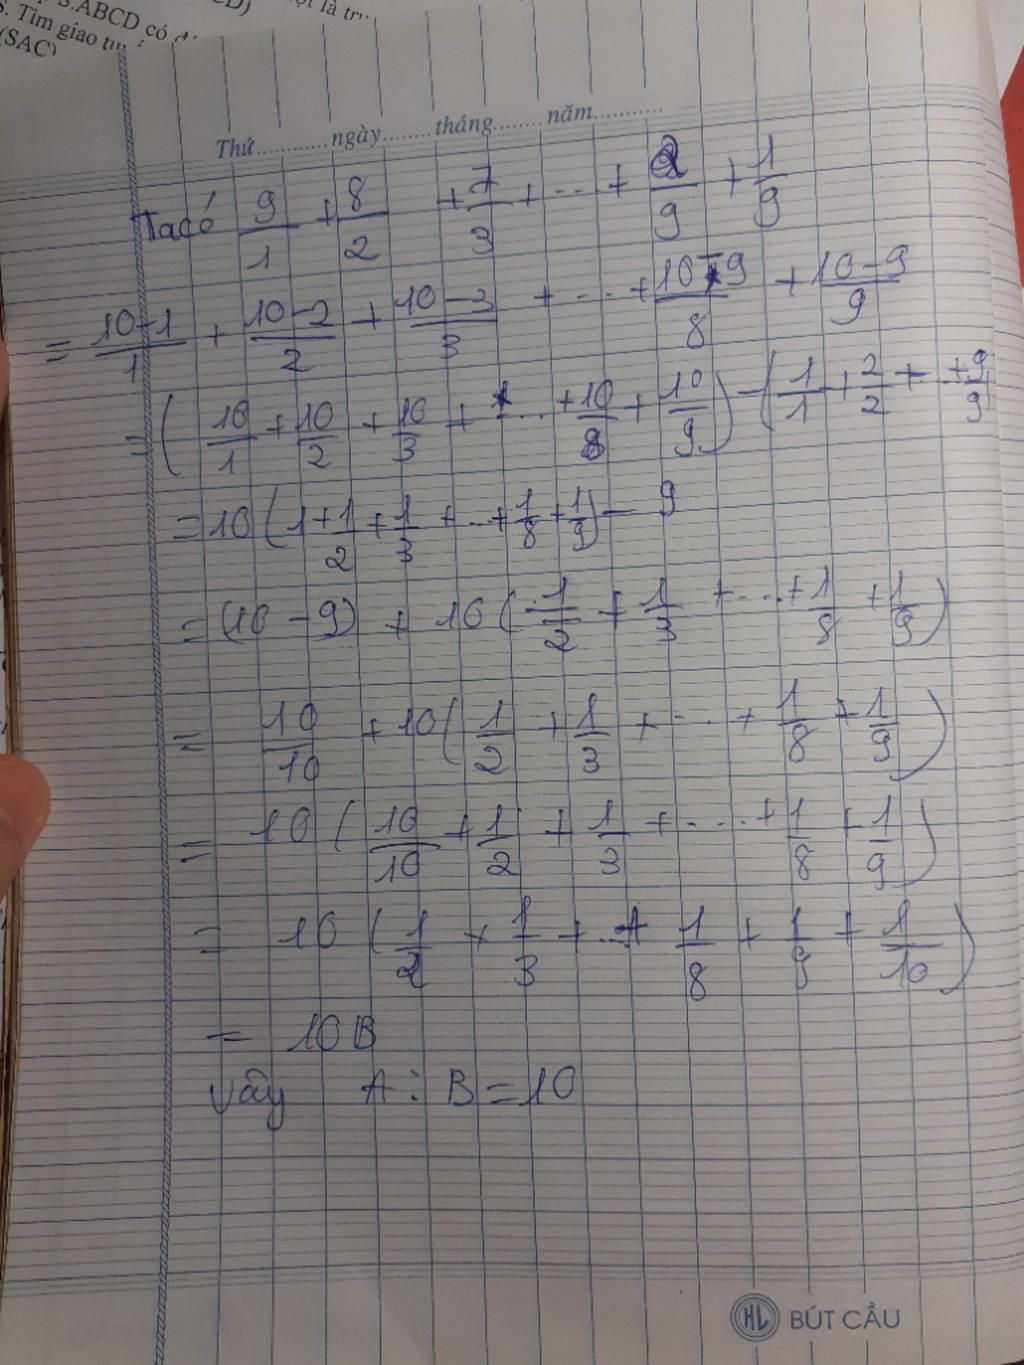 S.ABCD có
S. Tìm giao
(SAC)
CD)
là
Thứ............ngày.......tháng.......năm...........
Ta có 9/1 + 8/2 + 7/3 + ... + 2/9 + 1/9
= 10-1/1 + 10-2/2 + 10-3/3 + ... + 10-9/8 + 10-9/9
= (10/1 + 10/2 + 10/3 + ... + 10/8 + 10/9) - (1/1 + 2/2 + + 9/9
= 10 (1 + 1/2 + 1/3 + ... + 1/8 + 1/9) - 9
= (10 - 9) + 10 (1/2 + 1/3 + ... + 1/8 + 1/9)
= 10/10 + 10 (1/2 + 1/3 + ... + 1/8 + 1/9)
= 10 (10/10 + 1/2 + 1/3 + ... + 1/8 + 1/9)
= 10 (1/2 + 1/3 + ... + 1/8 + 1/9 + 1/10)
= 10B
Vậy A : B = 10
HL BÚT CẦU